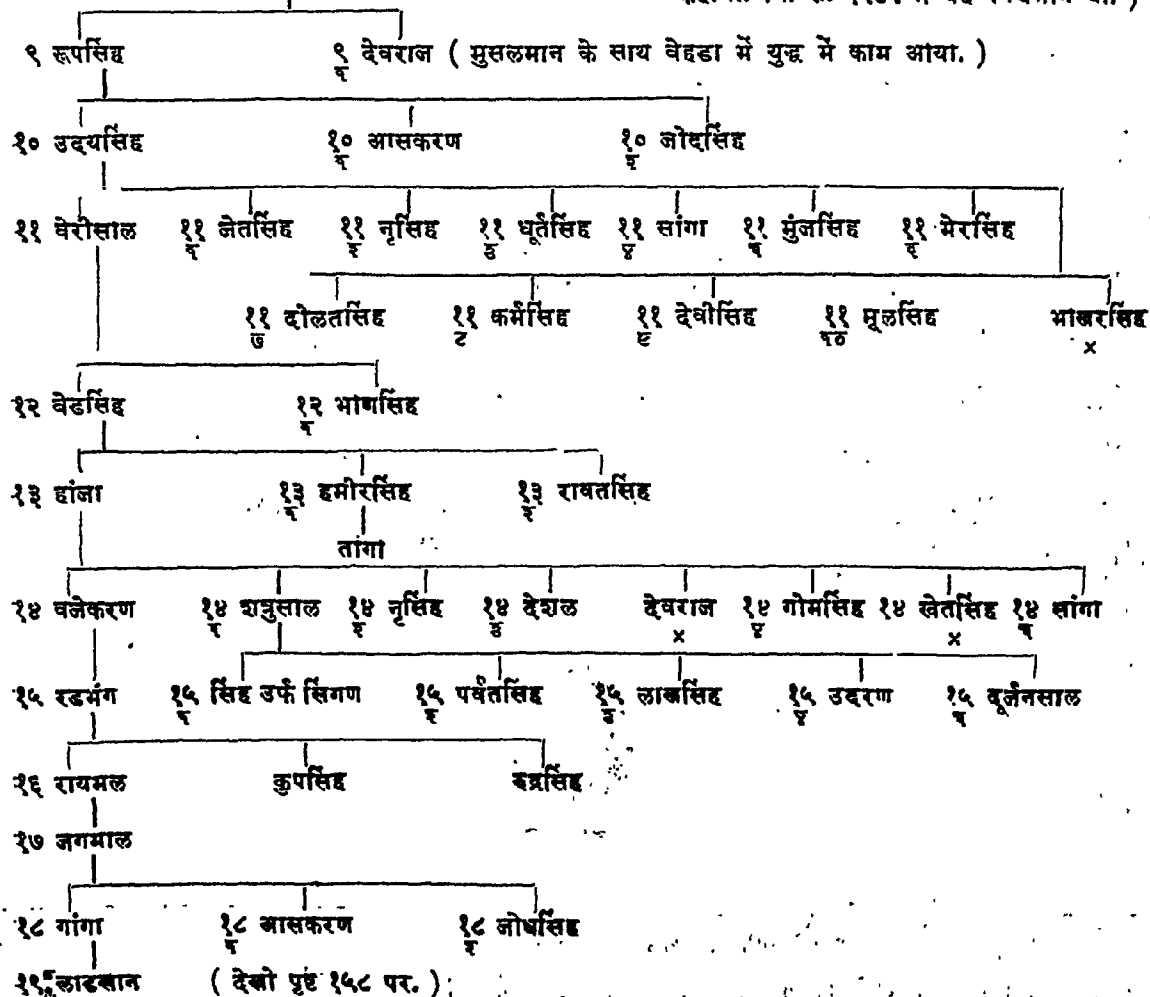 ९ रूपसिंह ९/१ देवराज ( मुसलमान के साथ वेहडा में युद्ध में काम आया. )
१० उदयसिंह १०/१ आसकरण १०/२ जोदसिंह
११ वेरीसाल ११/१ जेतसिंह ११/२ नृसिंह ११/३ धूर्तसिंह ११/४ सांगा ११/५ मुंजसिंह ११/६ मेरसिंह
११/७ दोलतसिंह ११/८ कर्मसिंह ११/९ देवीसिंह ११/१० मूलसिंह भाखरसिंह ×
१२ वेडसिंह १२/१ भाणसिंह
१३ हांजा १३/१ हमीरसिंह १३/२ रावतसिंह
तांगा
१४ वजेकरण १४/१ शत्रुसाल १४/२ नृसिंह १४/३ देशल देवराज × १४/४ गोमसिंह १४ खेतसिंह × १४/५ सांगा
१५ रडमंग १५/१ सिंह उर्फ सिंगण १५/२ पर्वतसिंह १५/३ लाखसिंह १५/४ उदरण १५/५ दूर्जनसाल
१६ रायमल कुपसिंह रुद्रसिंह
१७ जगमाल
१८ गांगा १८/१ आसकरण १८/२ जोधसिंह
१९ लाडखान ( देखो पृष्ट १५८ पर. )